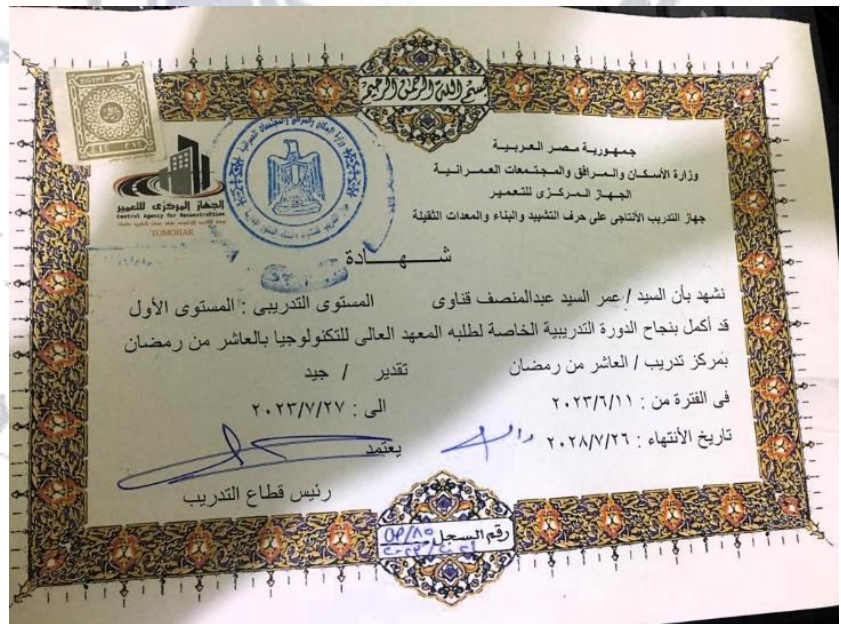 بسم الله الرحمن الرحيم
EGYPT مصر
جمهورية مصر العربية
وزارة الأسكان والمرافق والمجتمعات العمرانية
الجهاز المركزى للتعمير
جهاز التدريب الأنتاجى على حرف التشييد والبناء والمعدات الثقيلة
الجهاز المركزى للتعمير
Central Agency for Reconstruction
TOMOHAR
شهادة
نشهد بأن السيد / عمر السيد عبدالمنصف قناوى المستوى التدريبى : المستوى الأول
قد أكمل بنجاح الدورة التدريبية الخاصة لطلبه المعهد العالى للتكنولوجيا بالعاشر من رمضان
بمركز تدريب / العاشر من رمضان تقدير / جيد
فى الفترة من : ٢٠٢٣/٦/١١ الى : ٢٠٢٣/٧/٢٧
تاريخ الأنتهاء : ٢٠٢٨/٧/٢٦ يعتمد
رئيس قطاع التدريب
رقم السجل